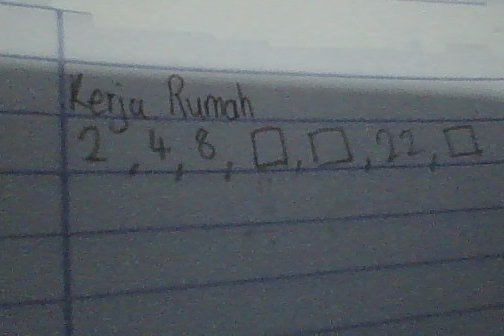 Kerja Rumah
2, 4, 8, □, □, 22, □